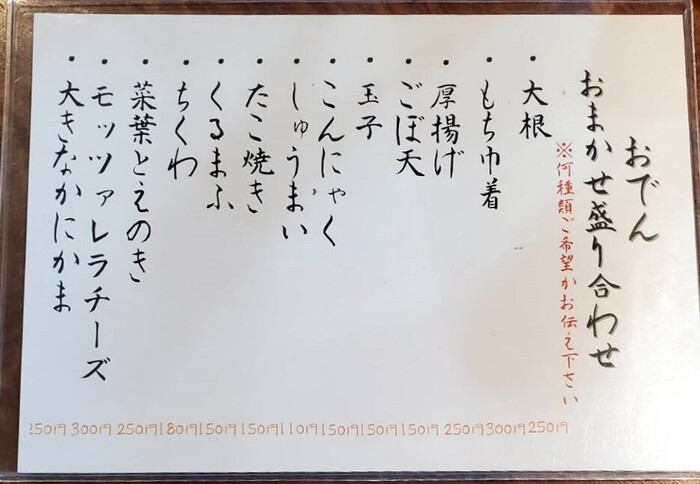 おでん
おまかせ盛り合わせ
※何種類ご希望かお伝え下さい
・大根 250円
・もち巾着 300円
・厚揚げ 250円
・ごぼ天 150円
・玉子 150円
・こんにゃく 150円
・しゅうまい 110円
・たこ焼き 150円
・くるまふ 150円
・ちくわ 180円
・菜葉とえのき 250円
・モッツァレラチーズ 300円
・大きなかにかま 250円